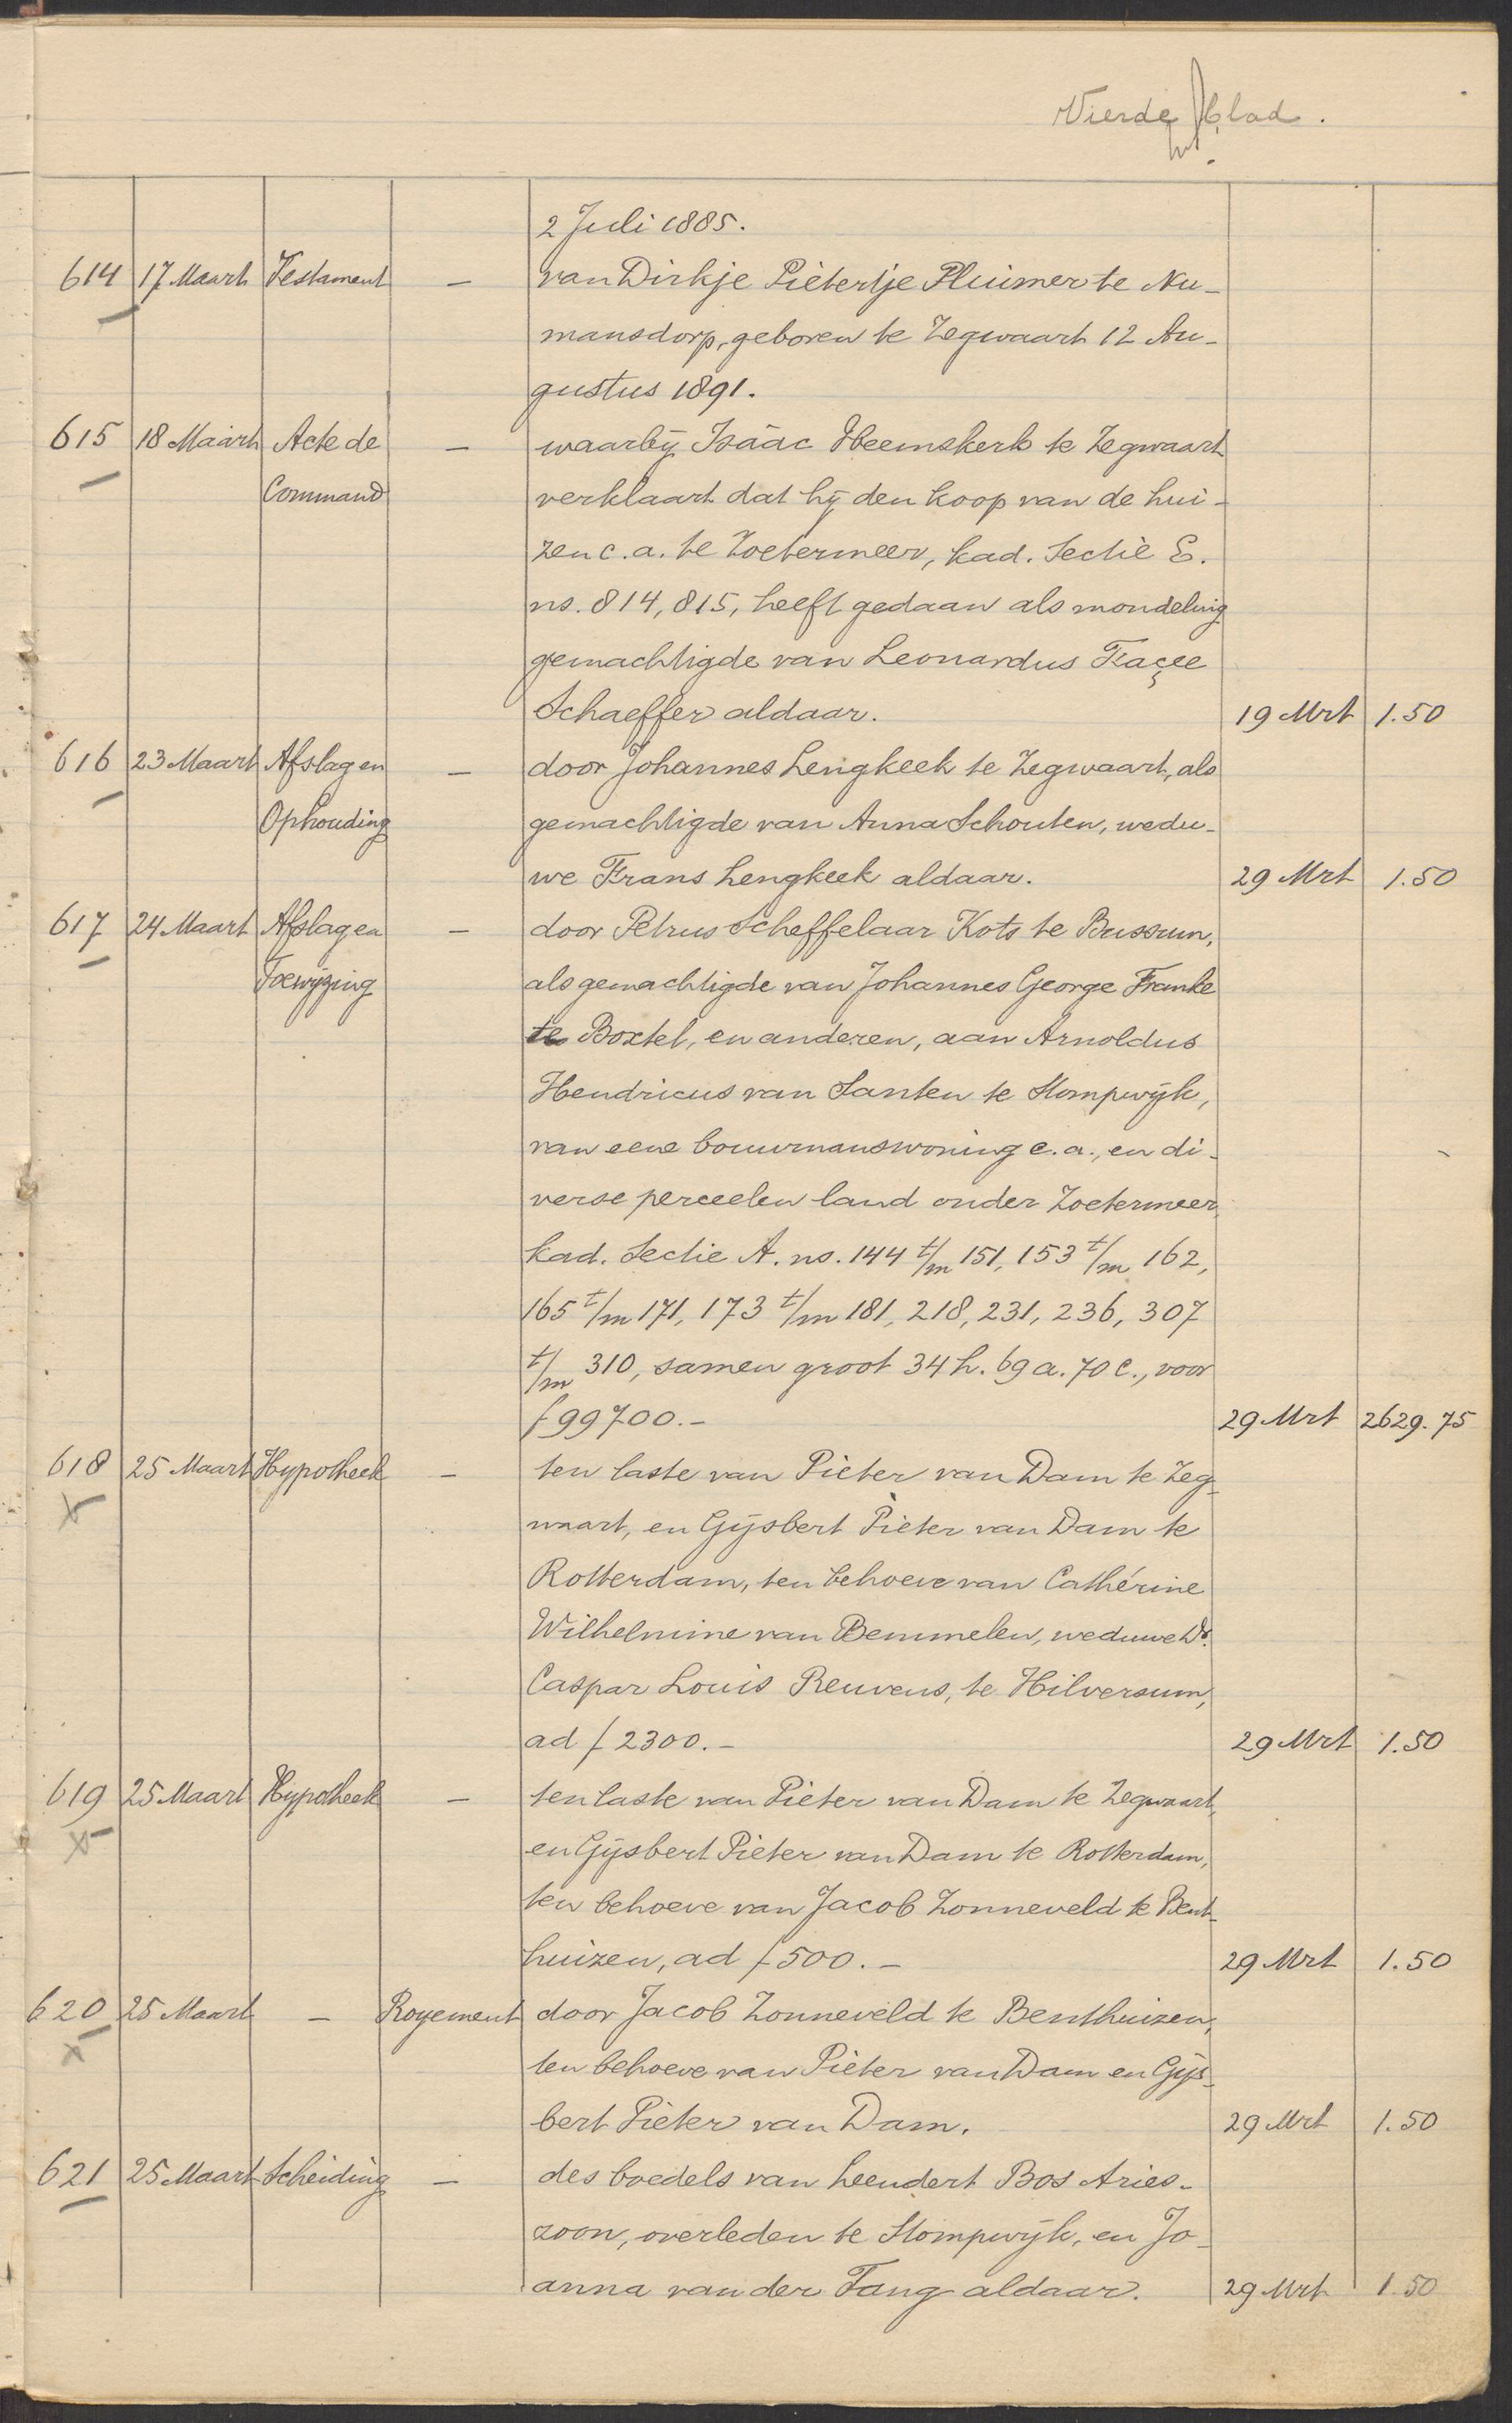 Vierde blad.
2 Juli 1885.
614 17 Maart Testament — van Dirkje Pietertje Pluimer te Nu-
mansdorp, geboren te Zegwaart 12 Au-
gustus 1891.
615 18 Maart Acte de — waarbij Isaäc Heemskerk te Zegwaart
Command verklaart dat hij den koop van de hui-
zen c.a. te Zoetermeer, kad. Sectie E.
ns. 814, 815, heeft gedaan als mondeling
gemachtigde van Leonardus Façee
Schaeffer aldaar. 19 Mrt 1.50
616 23 Maart Afslag en — door Johannes Lengkeek te Zegwaart, als
Ophouding gemachtigde van Anna Schouten, wedu-
we Frans Lengkeek aldaar. 29 Mrt 1.50
617 24 Maart Afslag en — door Petrus Scheffelaar Kots te Bussum,
Toewijzing als gemachtigde van Johannes George Franke
te Boxtel, en anderen, aan Arnoldus
Hendricus van Santen te Stompwijk,
van eene bouwmanswoning c.a., en di-
verse perceelen land onder Zoetermeer,
kad. Sectie A. ns. 144 t/m 151, 153 t/m 162,
165 t/m 171, 173 t/m 181, 218, 231, 236, 307
t/m 310, samen groot 34 h. 69 a. 70 c., voor
f 99700.- 29 Mrt 2629.75
618 25 Maart Hypotheek — ten laste van Pieter van Dam te Zeg-
waart, en Gijsbert Pieter van Dam te
Rotterdam, ten behoeve van Cathérine
Wilhelmine van Bemmelen, weduwe Dr.
Caspar Louis Reuvens, te Hilversum,
ad f 2300.- 29 Mrt 1.50
619 25 Maart Hypotheek — ten laste van Pieter van Dam te Zegwaart,
en Gijsbert Pieter van Dam te Rotterdam,
ten behoeve van Jacob Zonneveld te Bent-
huizen, ad f 500.- 29 Mrt 1.50
620 25 Maart — Royement door Jacob Zonneveld te Benthuizen,
ten behoeve van Pieter van Dam en Gijs-
bert Pieter van Dam. 29 Mrt 1.50
621 25 Maart Scheiding — des boedels van Leendert Bos Aries-
zoon, overleden te Stompwijk, en Jo-
anna van der Tang aldaar. 29 Mrt 1.50